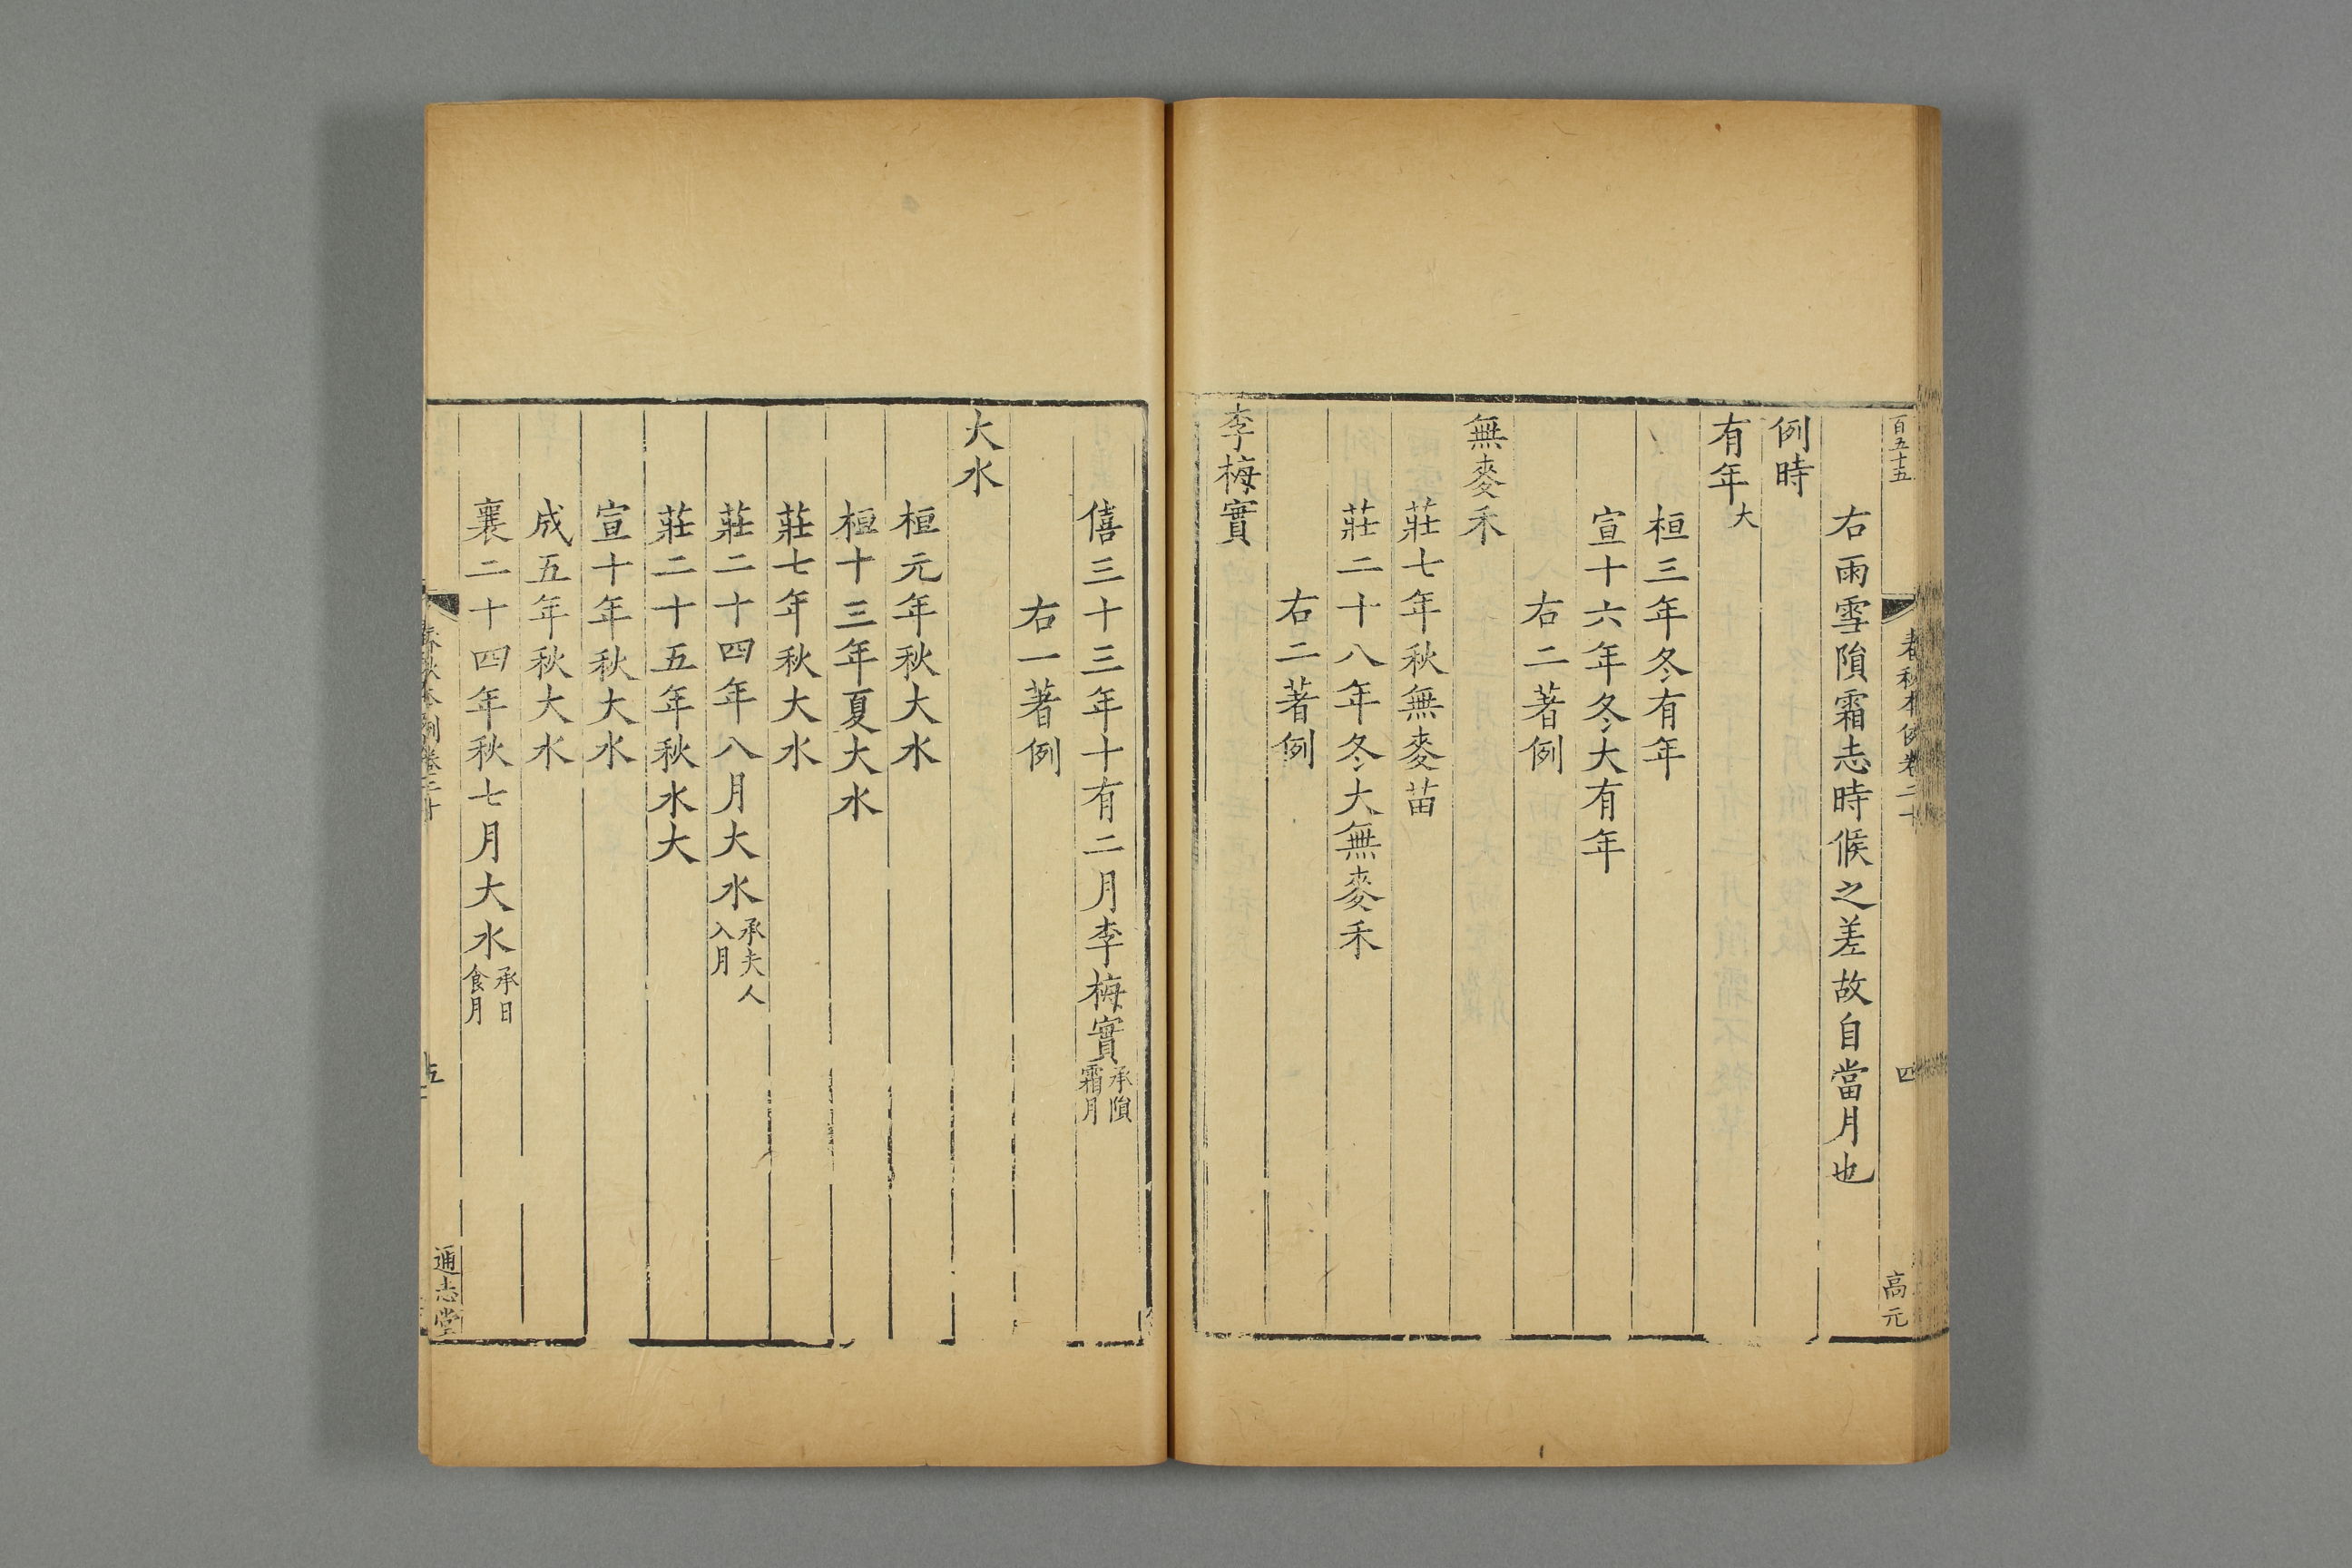 百五十五
春秋本例卷二十
四
高元
右雨雪隕霜志時候之差故自當月也
例時
有年大
桓三年冬有年
宣十六年冬大有年
右二著例
無麥禾
莊七年秋無麥苗
莊二十八年冬大無麥禾
右二著例
李梅實
僖三十三年十有二月李梅實承隕霜月
右一著例
大水
桓元年秋大水
桓十三年夏大水
莊七年秋大水
莊二十四年八月大水承夫人入月
莊二十五年秋水大
宣十年秋大水
成五年秋大水
襄二十四年秋七月大水承日食月
春秋本例卷二十
五
通志堂